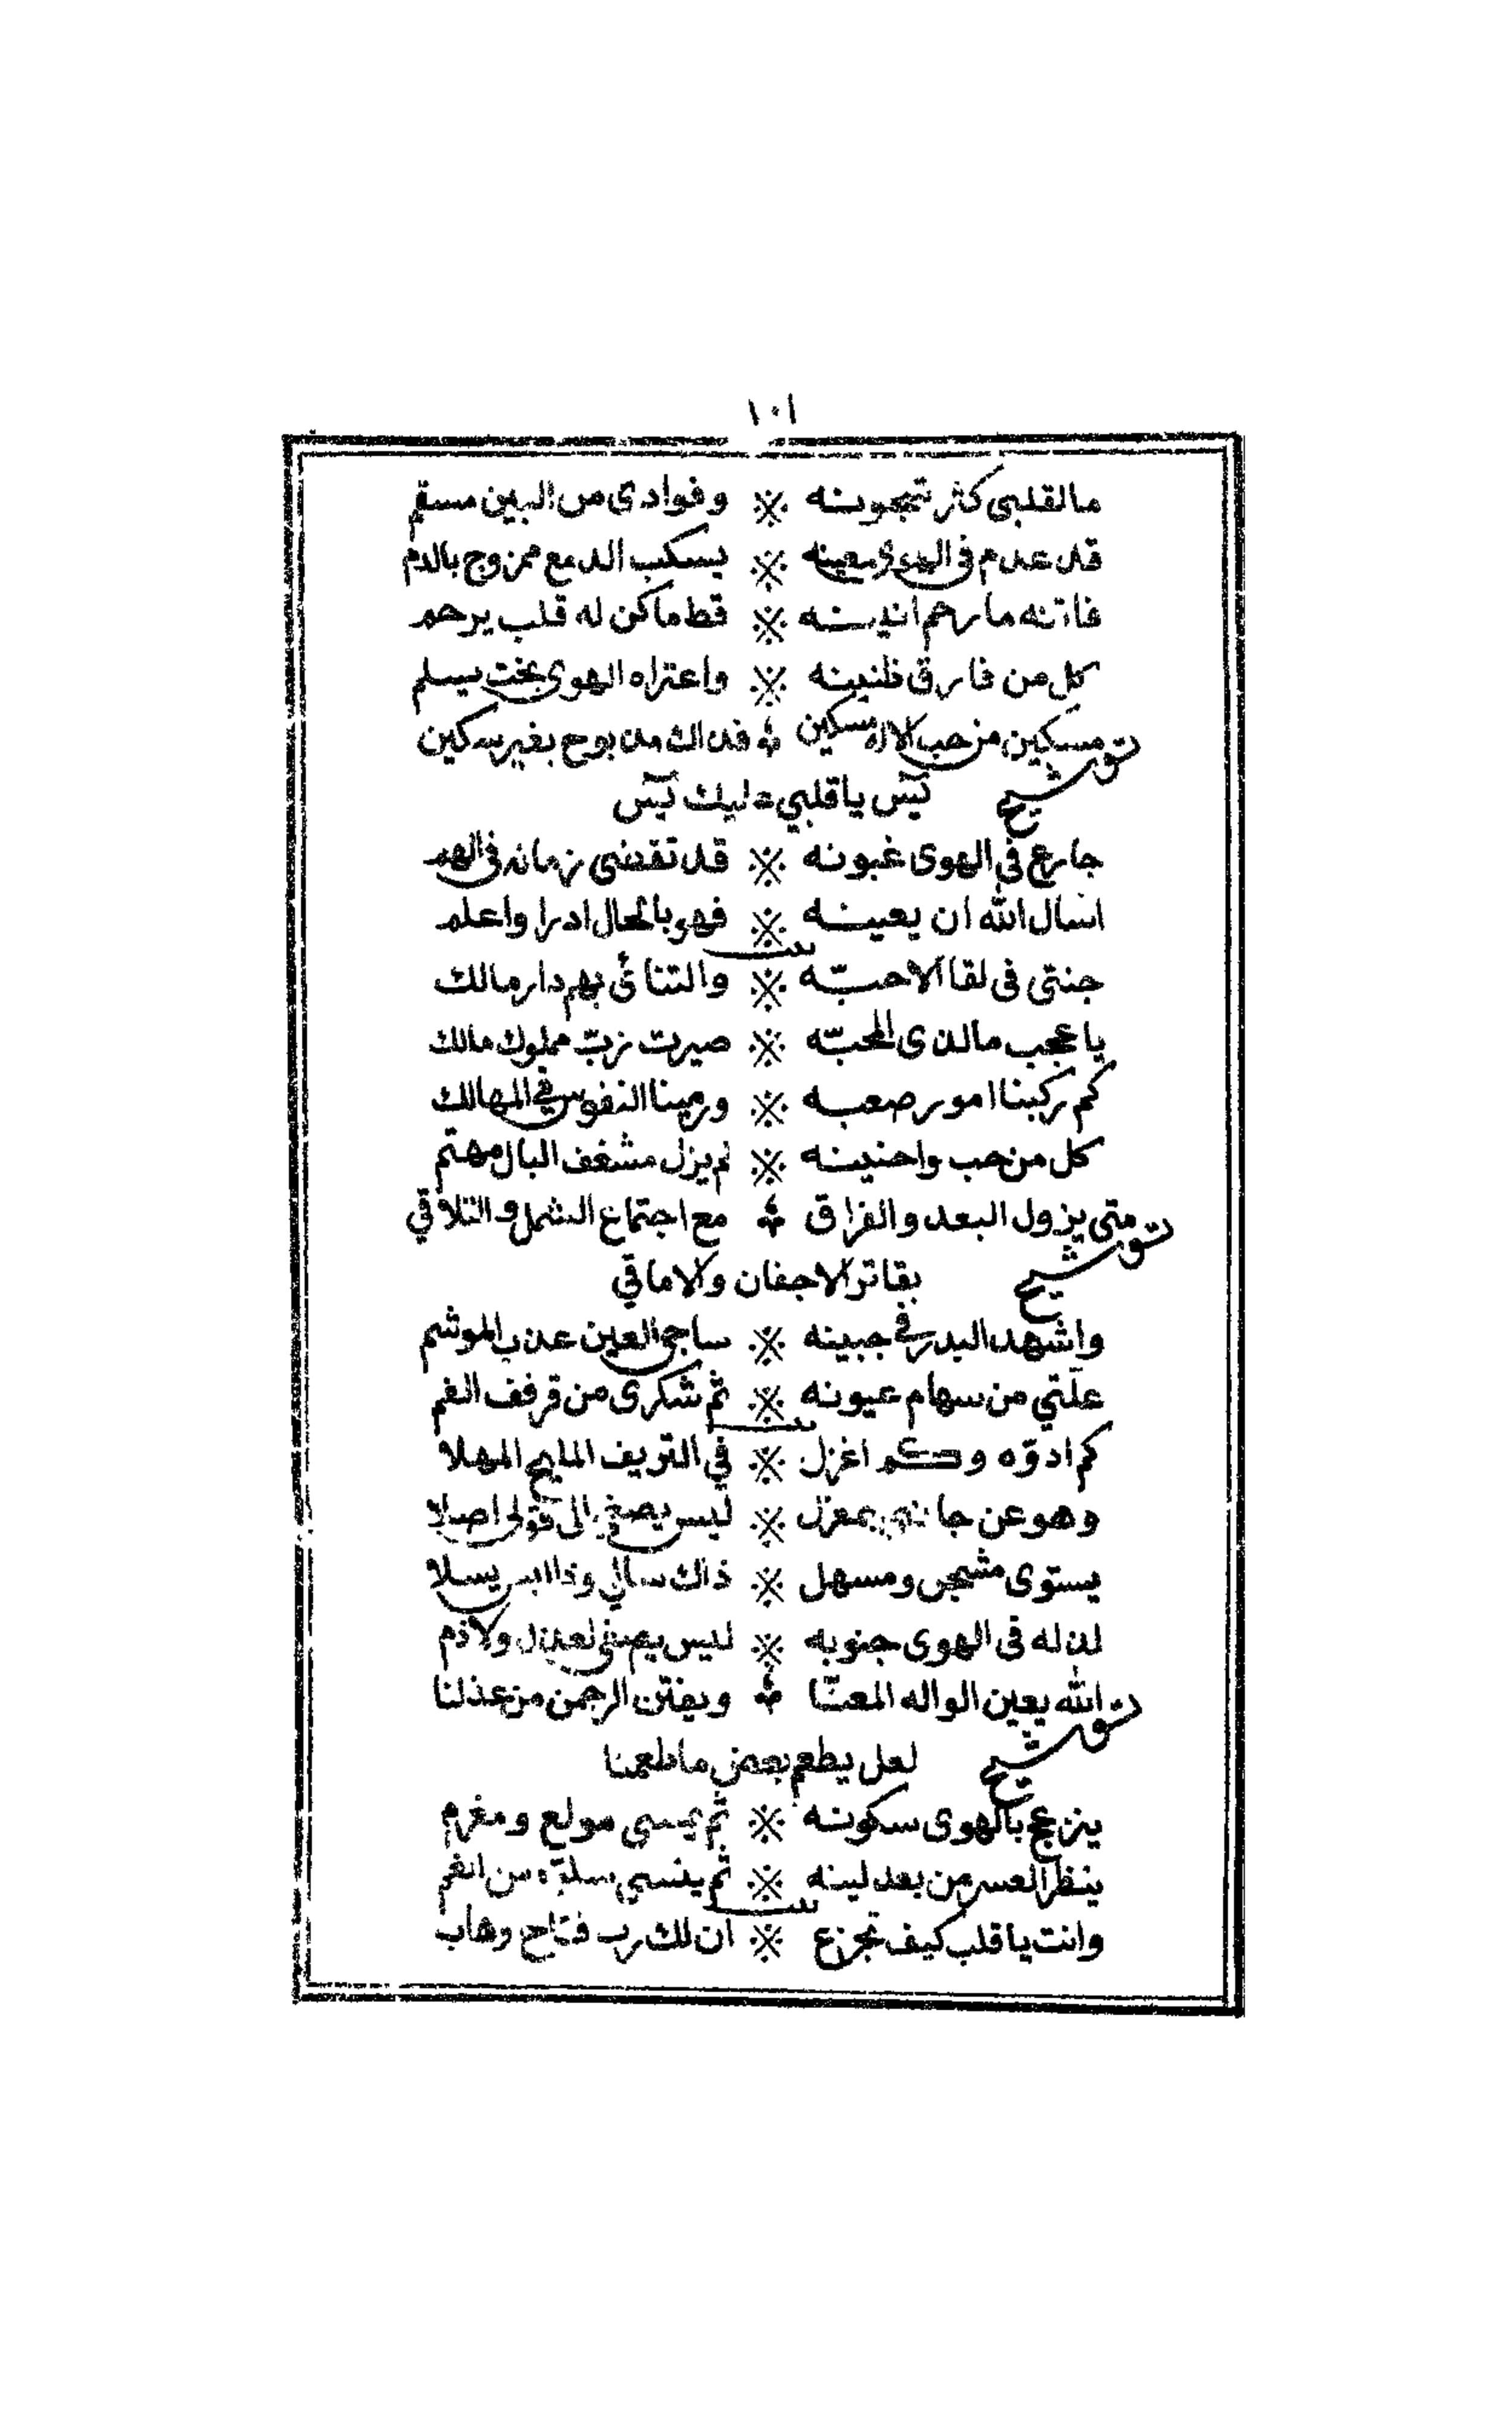 ١٠١
مالقلبي كثر تمجونه ※ وفوادى من البين مسقم
قد عدم فى الهوى معينه ※ يسكب الدمع ممزوج بالدم
فاتنه مارحم انينه ※ قط ماكن له قلب يرحم
كل من فارق ظنينه ※ واعتراه الهوى بخت يسلم
مسكين من حب الاله مسكين ؞ فذاك مذبوح بغير سكين
توشيح
تيس ياقلبي عليك تيس
جارع في الهوى غبونه ※ قد تقضى زمانه فى الهم
اسال الله ان يعينه ※ فهو بالحال ادرا واعلم
بيت
جنتى فى لقا الاحبّه ※ والتنائى بهم دار مالك
ياعجب مالذى المحبّه ※ صيرت ربّ مملوك مالك
كم ركبنا امور صعبه ※ ورمينا النفوس في المهالك
كل من حب واحنينه ※ لم يزل مشغف البال مهتم
متى يزول البعد والفراق ؞ مع اجتماع الشمل والتلاقي
توشيح
بفاتر الاجفان والاماقي
واشهد البدر في جبينه ※ ساجي العين عذب الموشم
علّتي من سهام عيونه ※ ثم شكرى من قرفف الفم
بيت
كم ادوّه وكم اغزل ※ في التريف المليح المهلا
وهو عن جانبي بمعزل ※ ليس يصغي الى قولى اصلا
يستوى مشجن ومسهل ※ ذاك سالي وذا ليس يسلا
لذ له فى الهوى جنونه ※ ليس يصغى لعذل ولا ذم
الله يعين الواله المعنّا ؞ ويفتن الرحمن من عذلنا
توشيح
لعل يطعم بعض ماطعمنا
ينزعج بالهوى سكونه ※ ثم يمسي مولع ومغرم
ينظر العسر من بعد لينه ※ ثم ينسي من الغم
بيت
وانت ياقلب كيف تجزع ※ ان لك رب فتاح وهاب